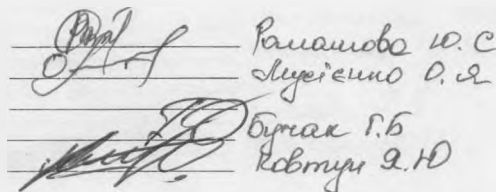 Ромашова Ю. С
Мусієнко О. Я
Бучак Г. Б
Ковтун Я. Ю